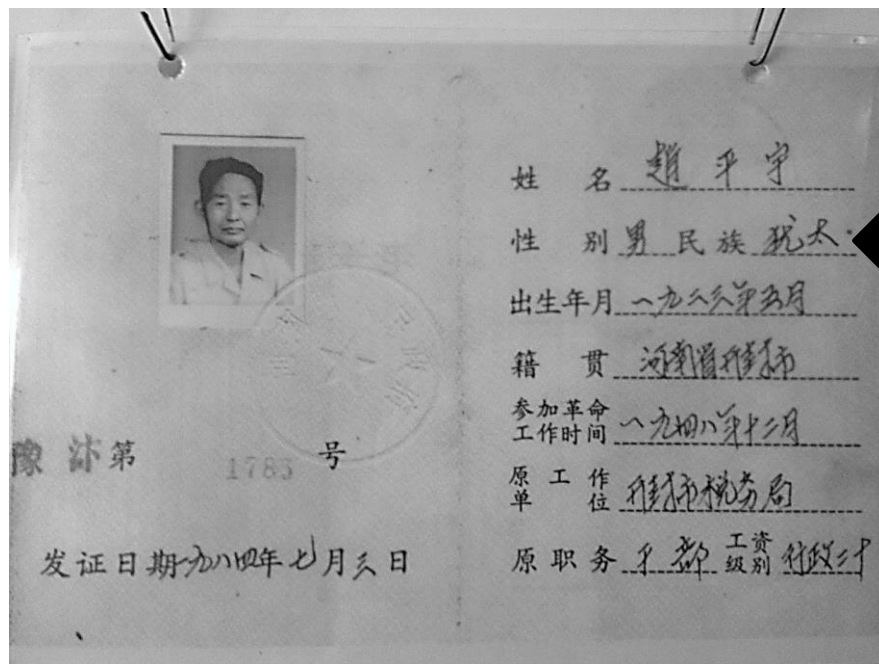 豫 汴 第 1785 号
发证日期一九八四年七月三日
姓 名 赵 平 宇
性 别 男 民 族 犹太
出生年月 一九三三年五月
籍 贯 河南省开封市
参加革命
工作时间 一九四八年十二月
原 工 作
单 位 开封市税务局
原 职 务 干 部 工资
级别 行政二十